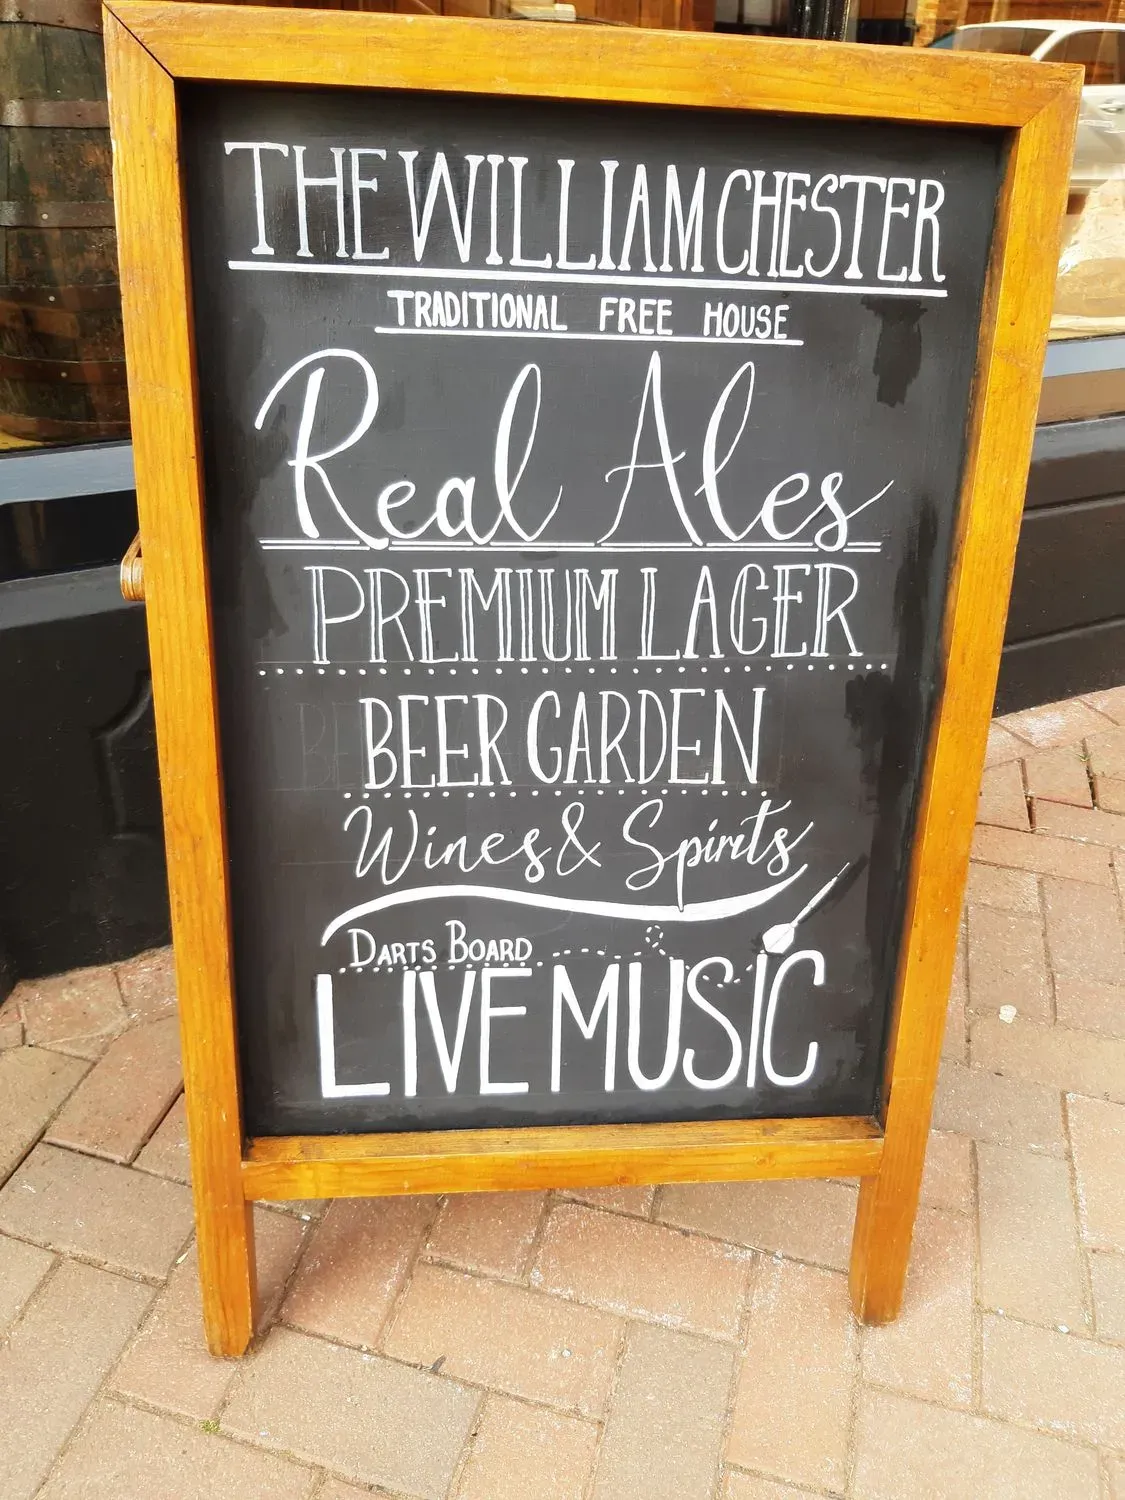 THE WILLIAM CHESTER
TRADITIONAL FREE HOUSE
Real Ales
PREMIUM LAGER
BEER GARDEN
Wines & Spirits
DARTS BOARD
LIVE MUSIC